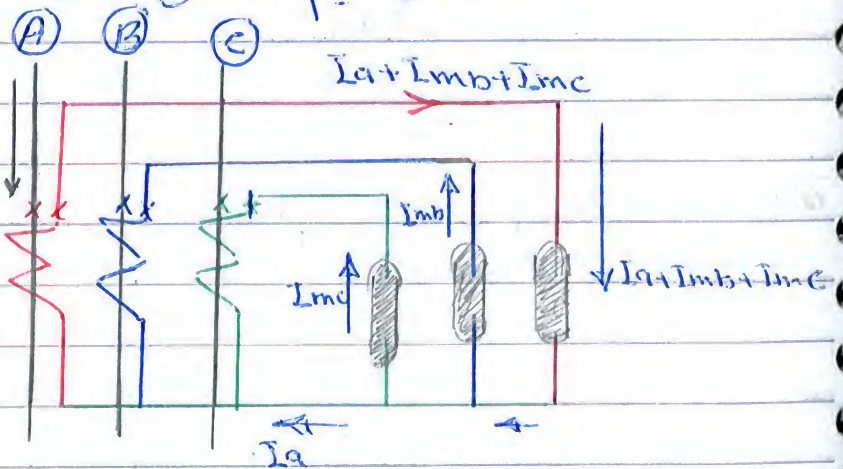 A B C
Ia+Imb+Imc
Imb
Imc
Ia+Imb+Imc
Ia